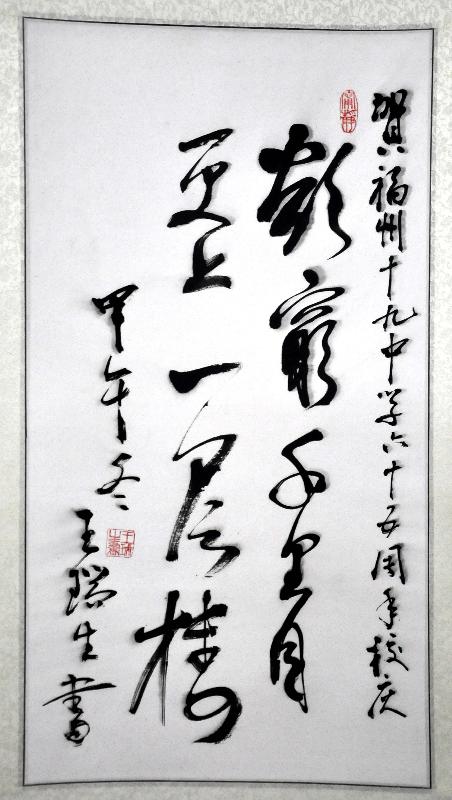 賀福州十九中学六十五周年校庆
欲窮千里目
更上一层楼
甲午冬
王瑞生書